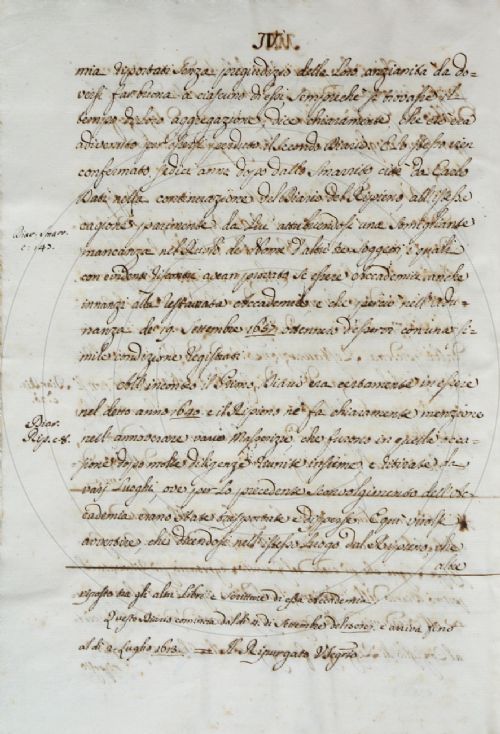 mia riportati senza pregiudizio della loro anzianità da do-
versi far buona a ciascuno di essi sempreche si trovasse il
tempo di loro aggregazione, dice chiaramente, che ciò era
adivenuto per essersi perduto il secondo Diario. E lo stesso vien
confermato sedici anni dopo dallo Smarrito cioè da Carlo
Dati nella continuazione del Diario del Ripieno all'istessa
cagione parimente da lui attribuendosi una somigliante
mancanza nel Ruolo de Nomi d'altri sei soggetti, i quali
con evidenti riscontri avean provato se essere Accademici anche
innanzi alla restaurata Accademia, e che perciò nell'adu-
nanza de 19. Settembre 1657. ottennero d'esservi con una si-
mile condizione registrati.
Diar. Smarr.
c. 143.
All'incontro il Primo Diario era certamente in essere
nel detto anno 1640. e il Ripieno ne fa chiaramente menzione
nell'annoverare varie Masserizie, che furono in quella occa-
sione dopo molte diligenze riunite insieme, e ritirate da
varj luoghi, ove per lo precedente sconvolgimento dell'Ac-
cademia erano state trasportate e disperse. E qui vuolsi
avvertire, che dicendosi nell'istesso luogo dal Ripieno, che
oltre
e Diar.
Rip. c. 8.
riposto tra gli altri Libri e Scritture di essa Accademia.
Questo Diario comincia dal dì 11. di Settembre del e arriva fino
al dì 2. Luglio 1613. = Il Ripurgato Segrio.